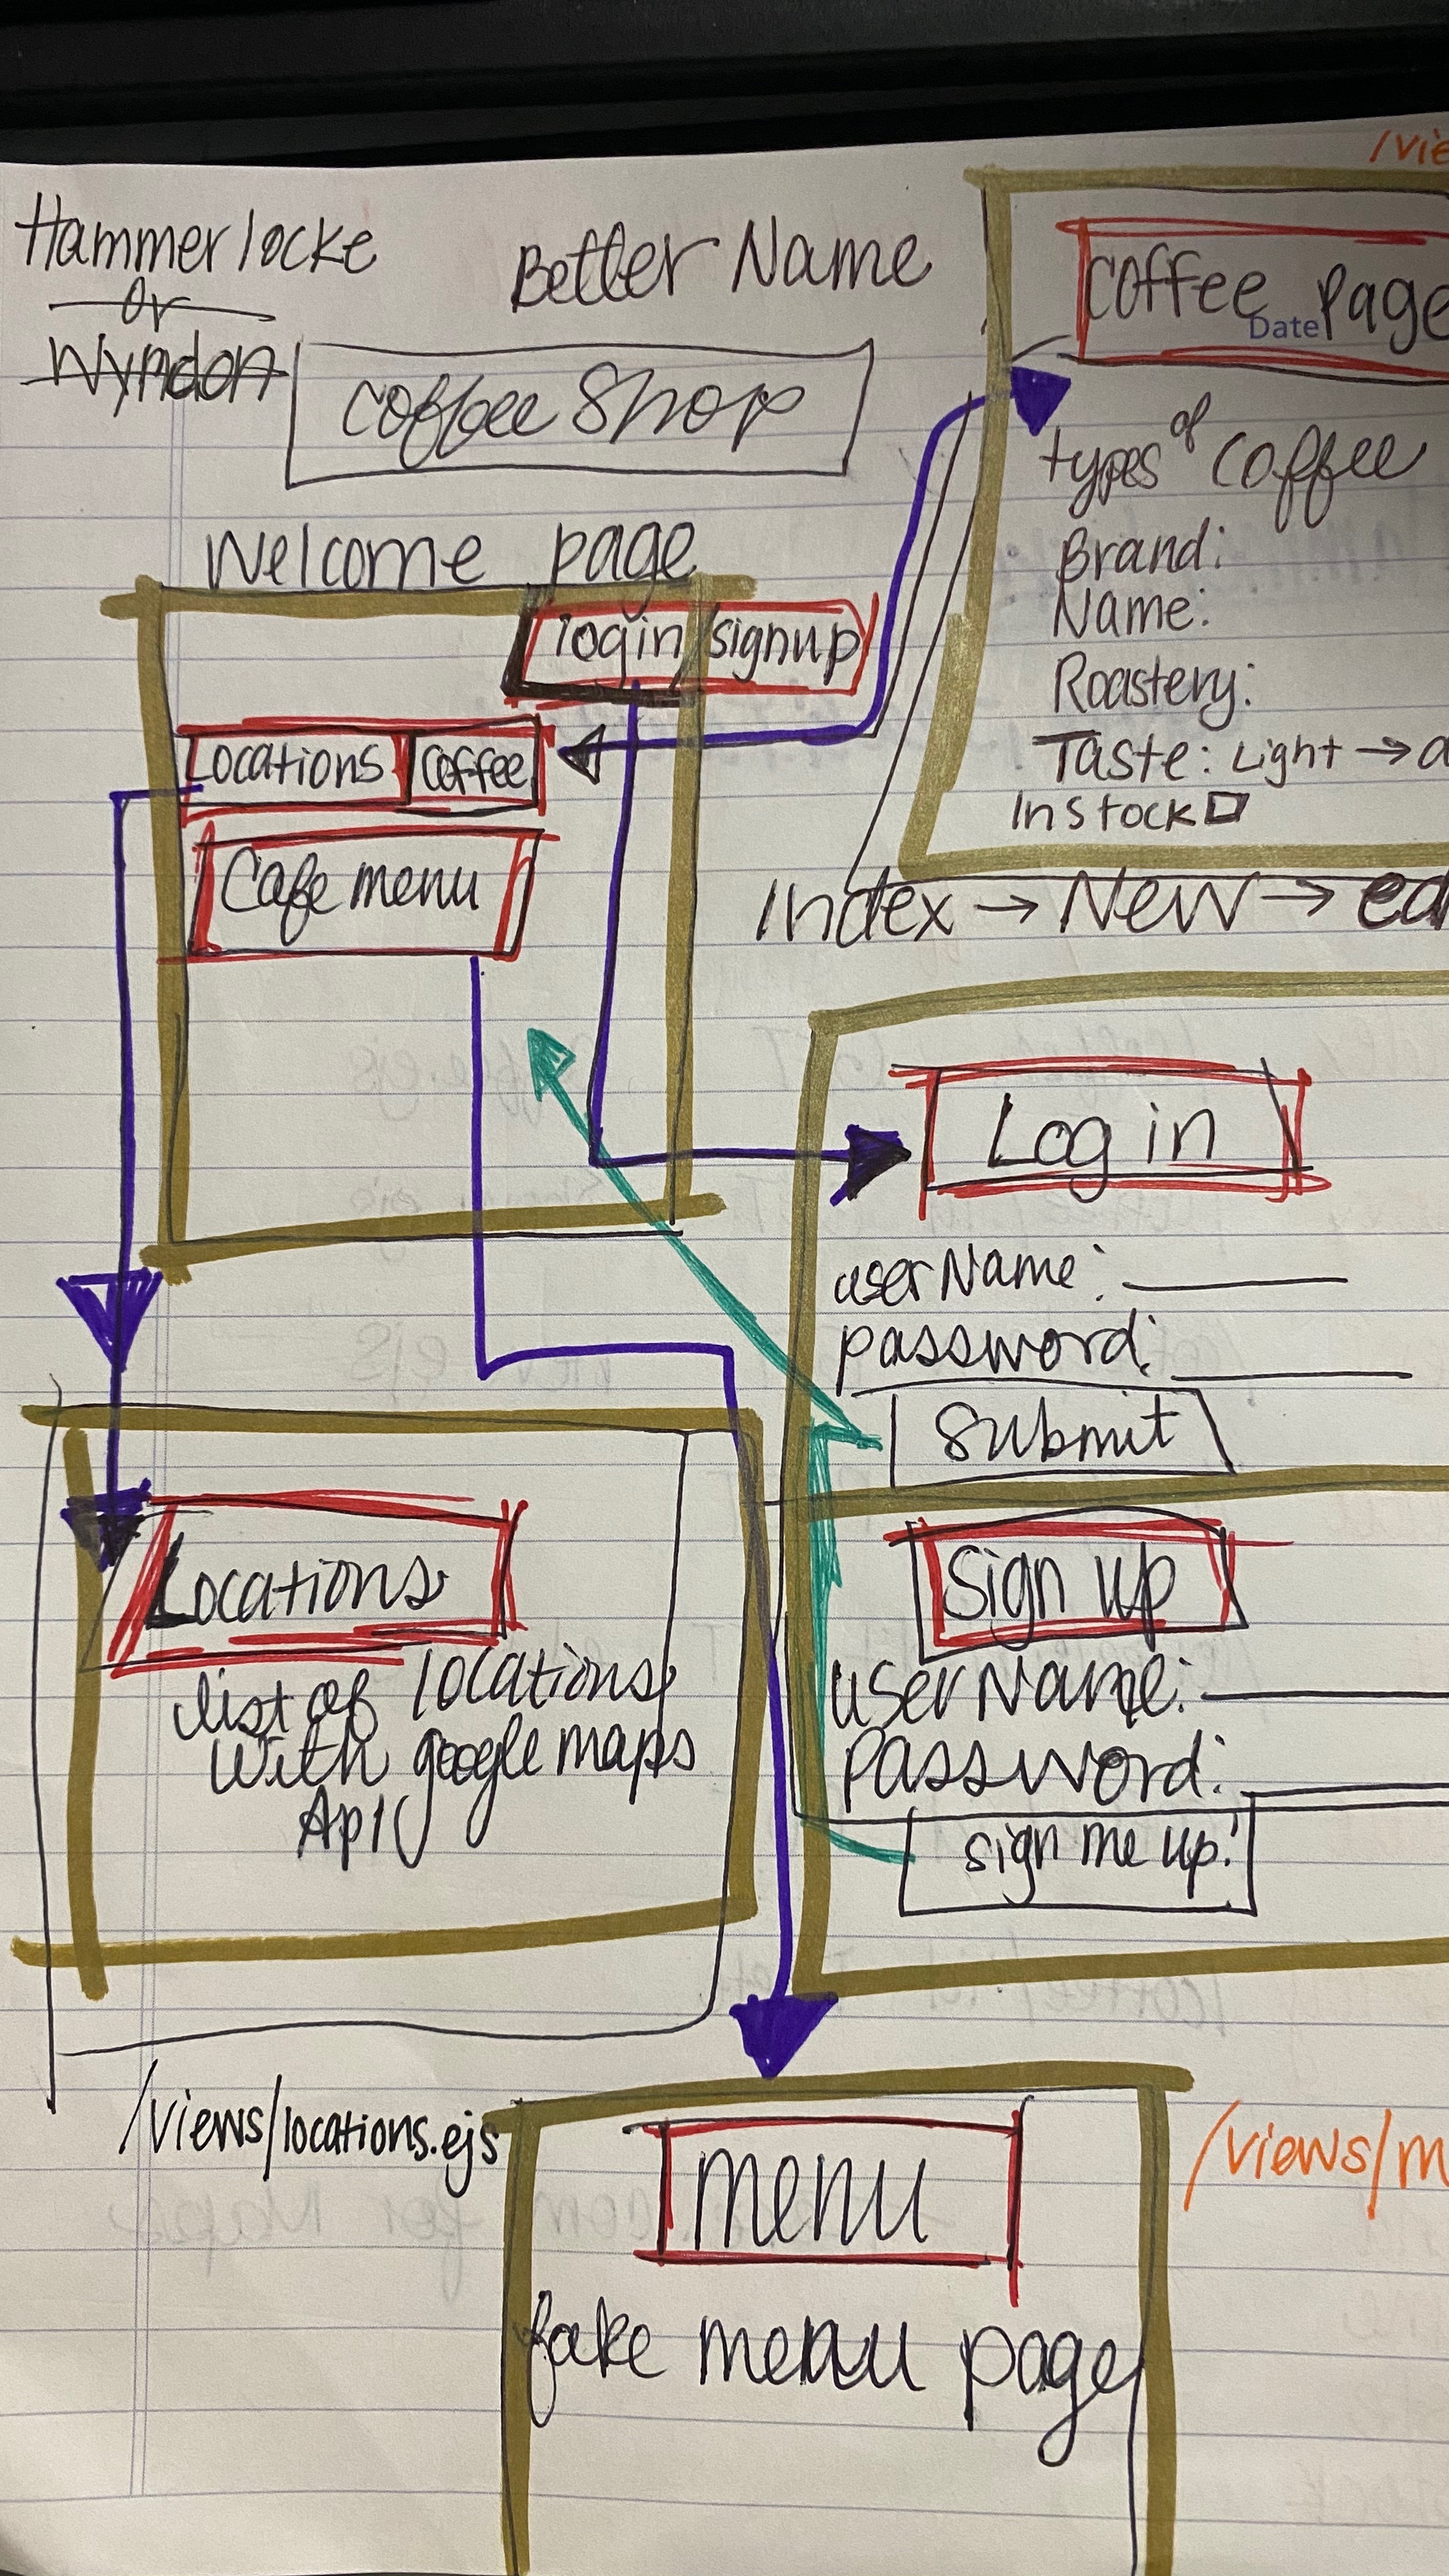 Hammerlocke
or
Wyndon
Better Name
Coffee Shop
Welcome page
login/signup
Locations
Coffee
Cafe menu
/vie
Coffee Page
Date
types of Coffee
Brand:
Name:
Roastery:
Taste: Light →
In stock
Index → New → ed
Log in
userName:
password:
Submit
Sign up
userName:
Password:
sign me up!
Locations
list of locations
with google maps
Api
/views/locations.ejs
menu
fake menu page
/views/m